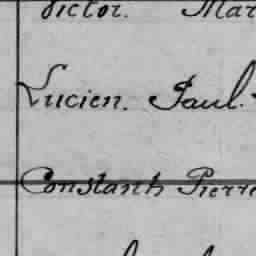 Victor. Mar
Lucien. Paul.
Constant Pierre